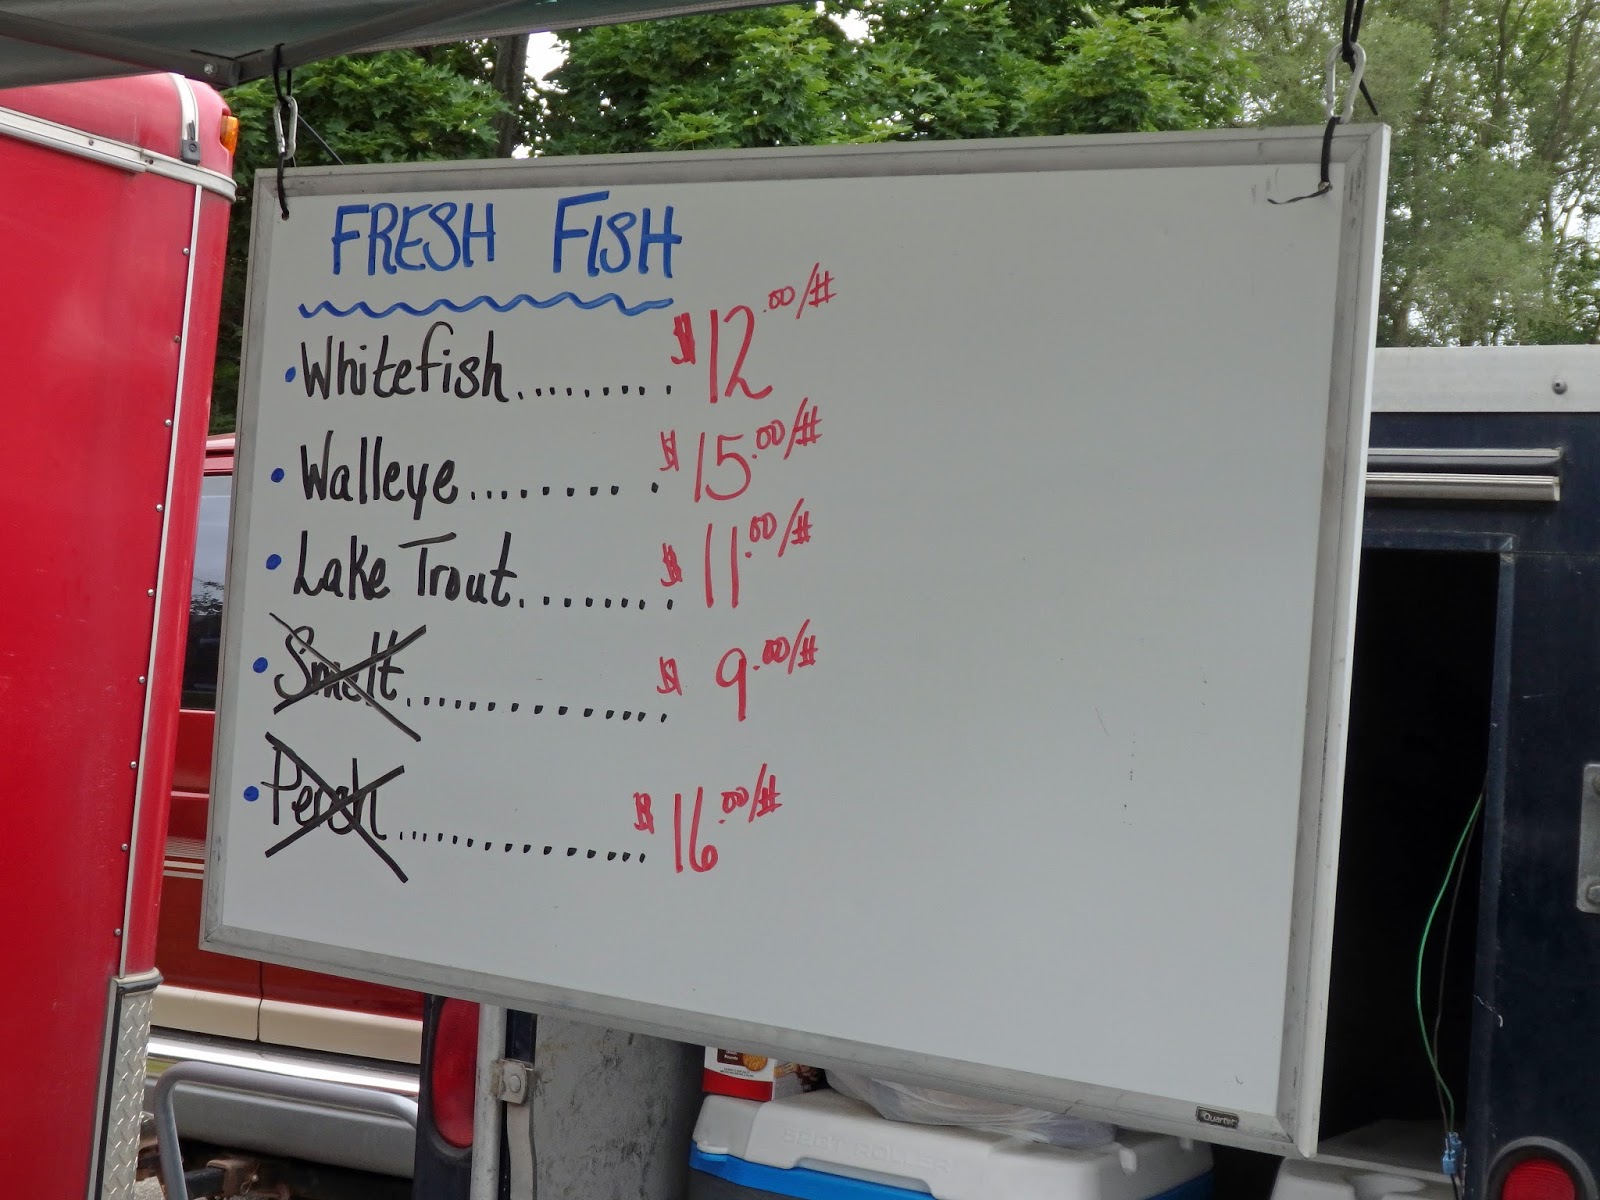 FRESH FISH
• Whitefish......... $12.00/#
• Walleye......... $15.00/#
• Lake Trout........ $11.00/#
• Smelt.............. $9.00/#
• Perch.............. $16.00/#
Quartet